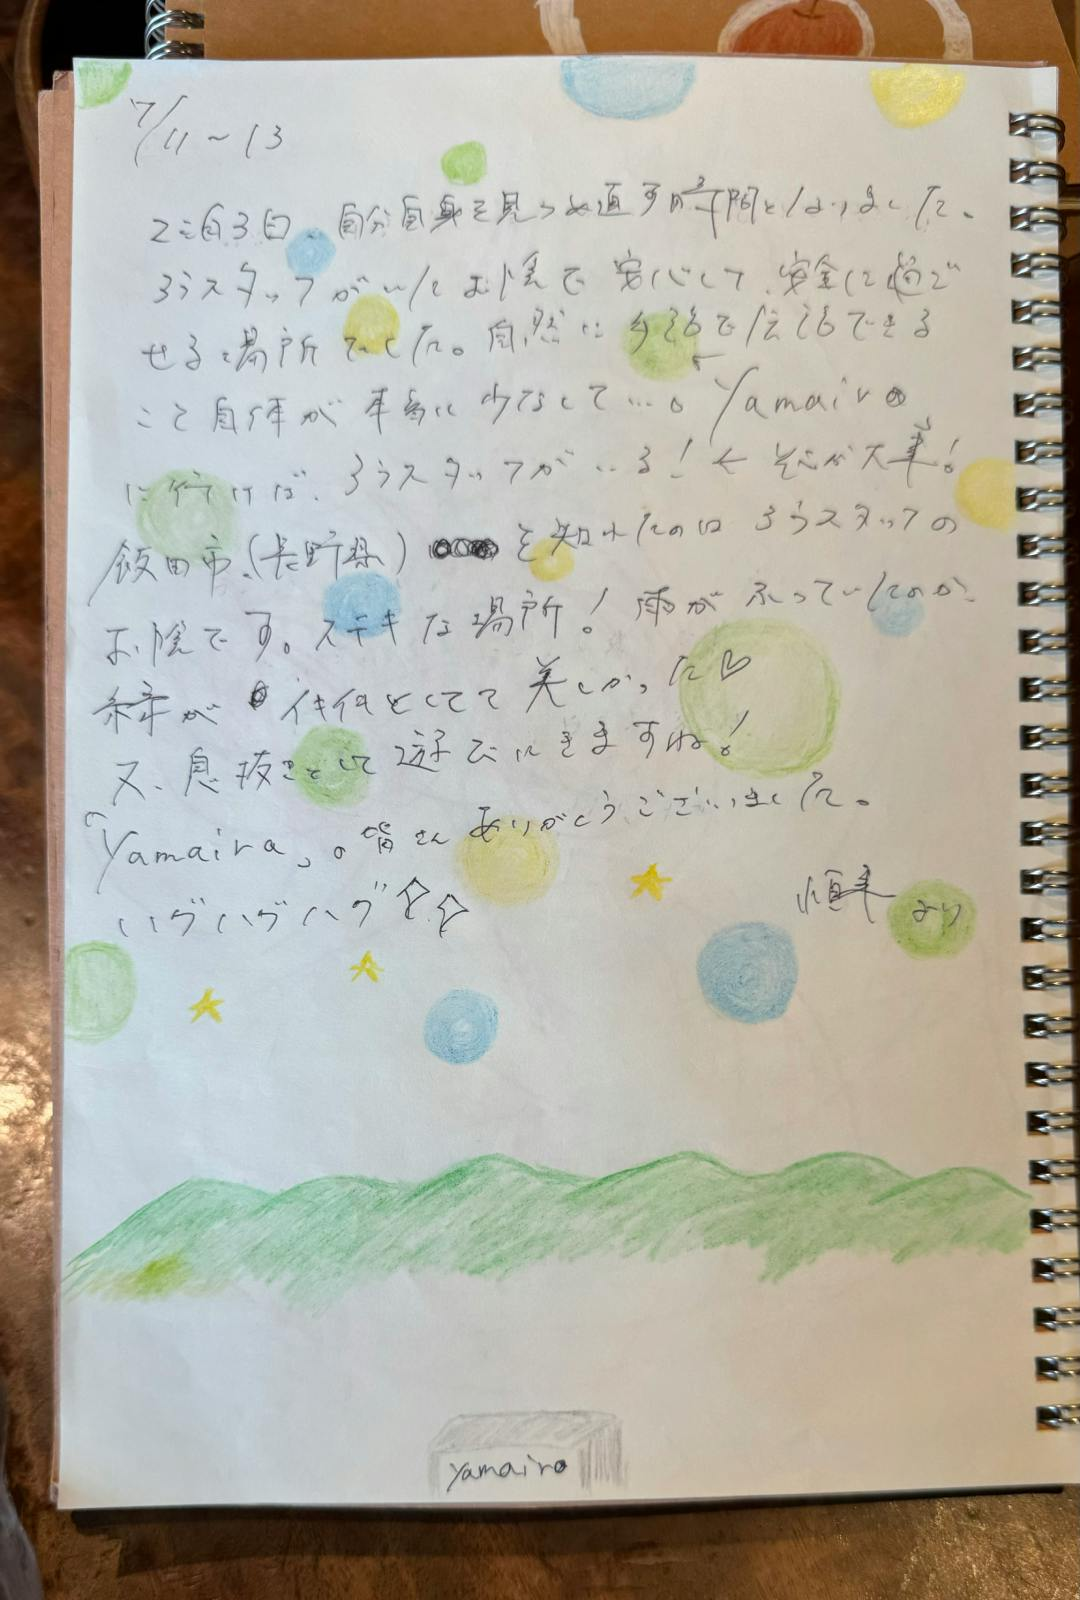 7/11～13
2泊3日、自分自身を見つめ直す時間となりました。
ろうスタッフがいたお陰で安心して、安全に過ご
せる場所でした。自然に手話で会話できる
こと自体が本当に少なくて…。Yamairo
に行けば、ろうスタッフがいる!←それが大事!
飯田市、(長野県)を知れたのはろうスタッフの
お陰です。ステキな場所!雨がふっていたのか、
緑がイキイキとしてて美しかった♡
又、息抜きとして遊びにきますね!
「Yamairo」の皆さんありがとうございました。
ハグハグハグ☆☆
より
yamairo